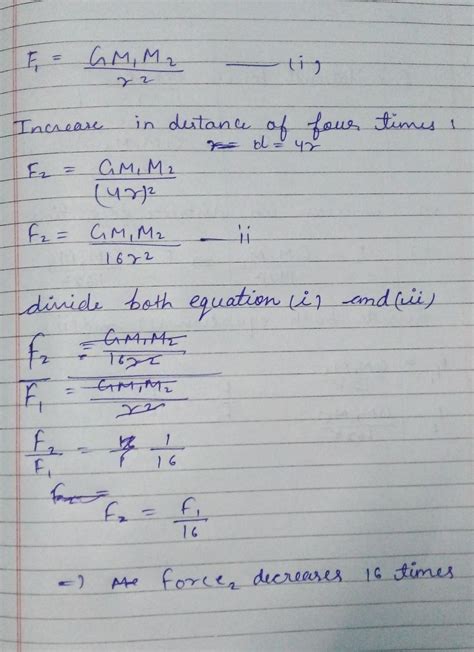 F₁ = GM₁M₂ / r² —— (i)
Increase in distance of four times,
d = 4r
F₂ = GM₁M₂ / (4r)²
F₂ = GM₁M₂ / 16r² — ii
divide both equation (i) and (ii)
F₂ = GM₁M₂ / 16r²
F₁ = GM₁M₂ / r²
F₂ / F₁ = 1 / 16
F₂ = F₁ / 16
=) force, decreases 16 times